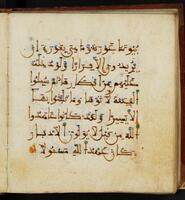 بيوتنا عورة وما هي بعورة ان
يريدون الا فرارا ولو دخلت
عليهم من اقطارها ثم سئلوا
الفتنة لاتوها وما تلبثوا بها
الا يسيرا ولقد كانوا عهدوا
الله من قبل لا يولون الادبر
وكان عهد الله مسئولا